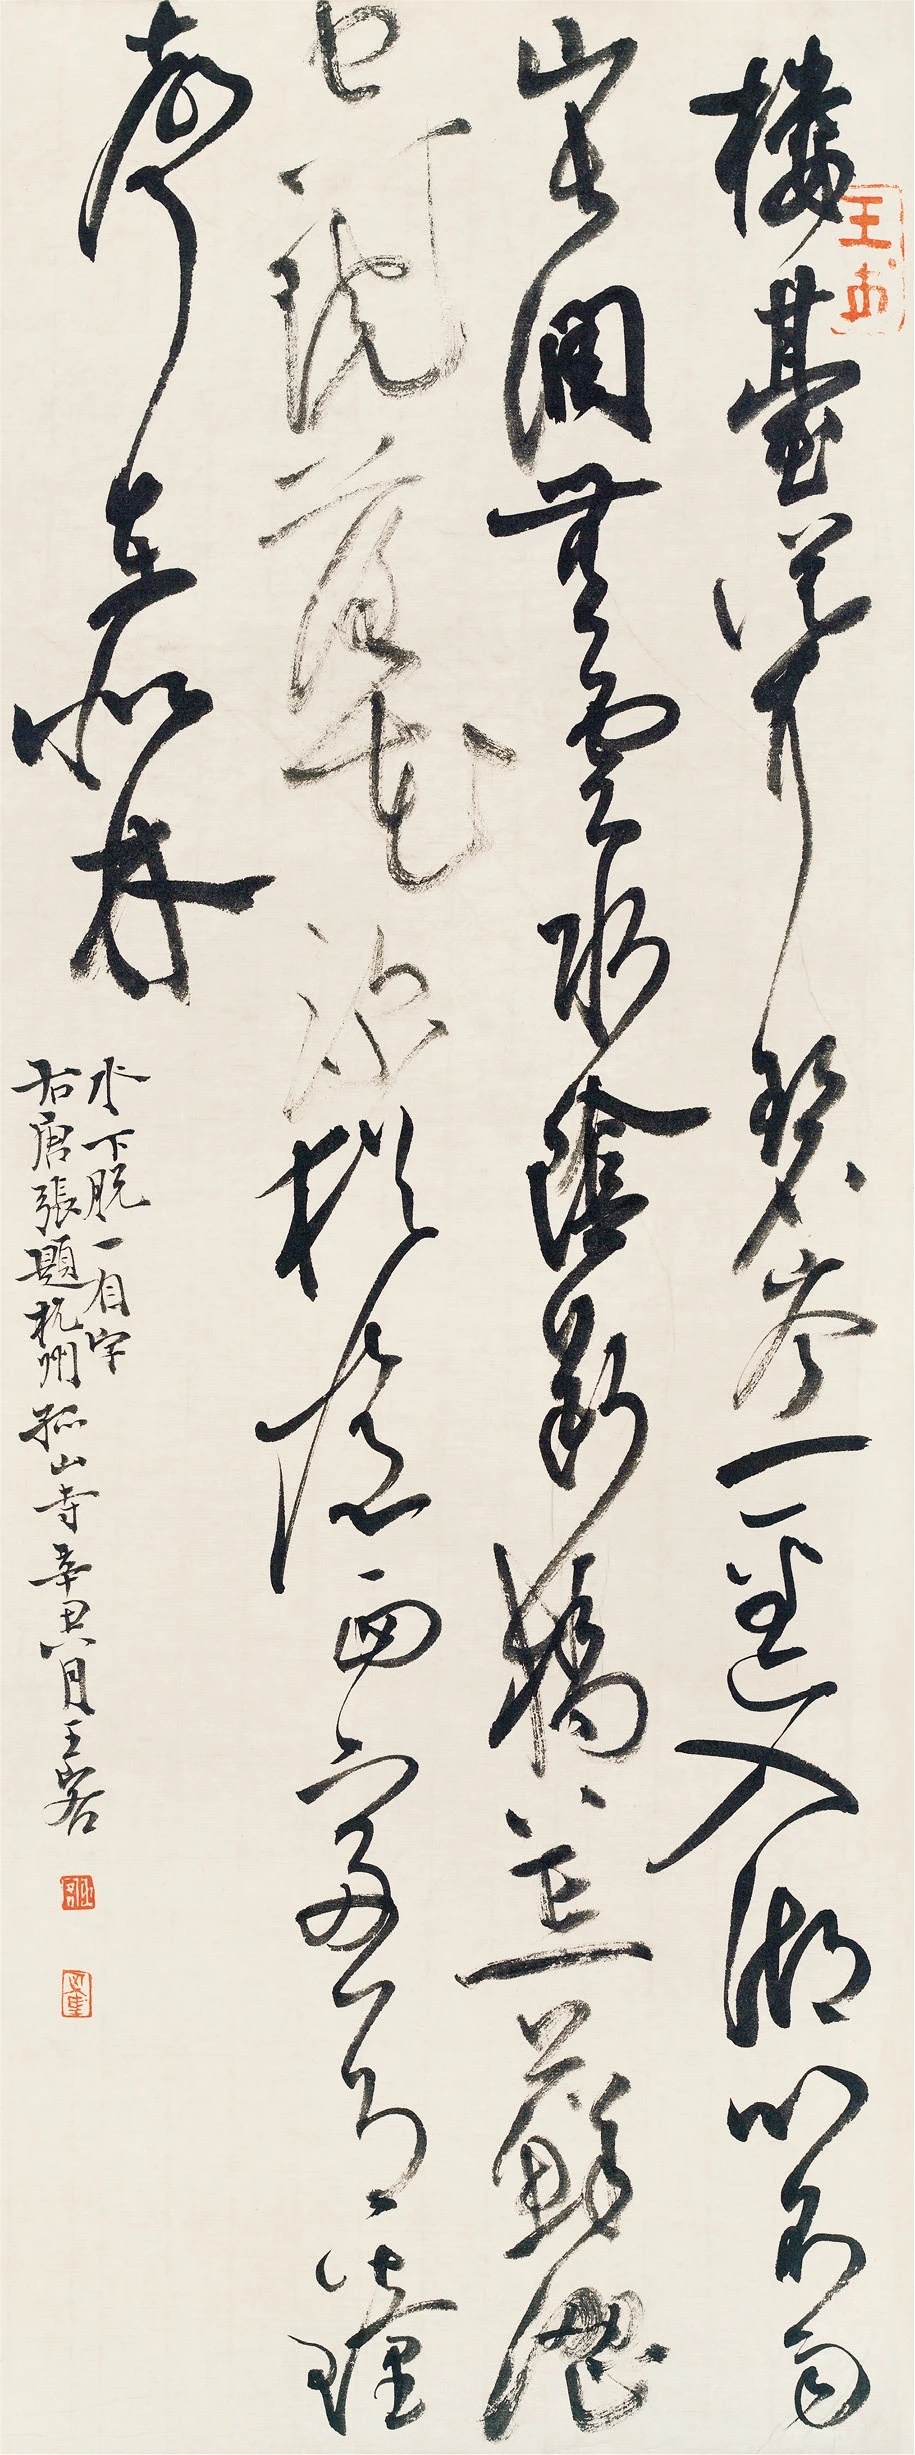 樓臺聳碧岑一徑入湖心不雨
山長潤無雲水陰斷橋荒蘚澀
空院落花深猶憶西窗月鐘
聲在北林
水下脱一自字
右唐張題杭州孤山寺辛丑八月王客